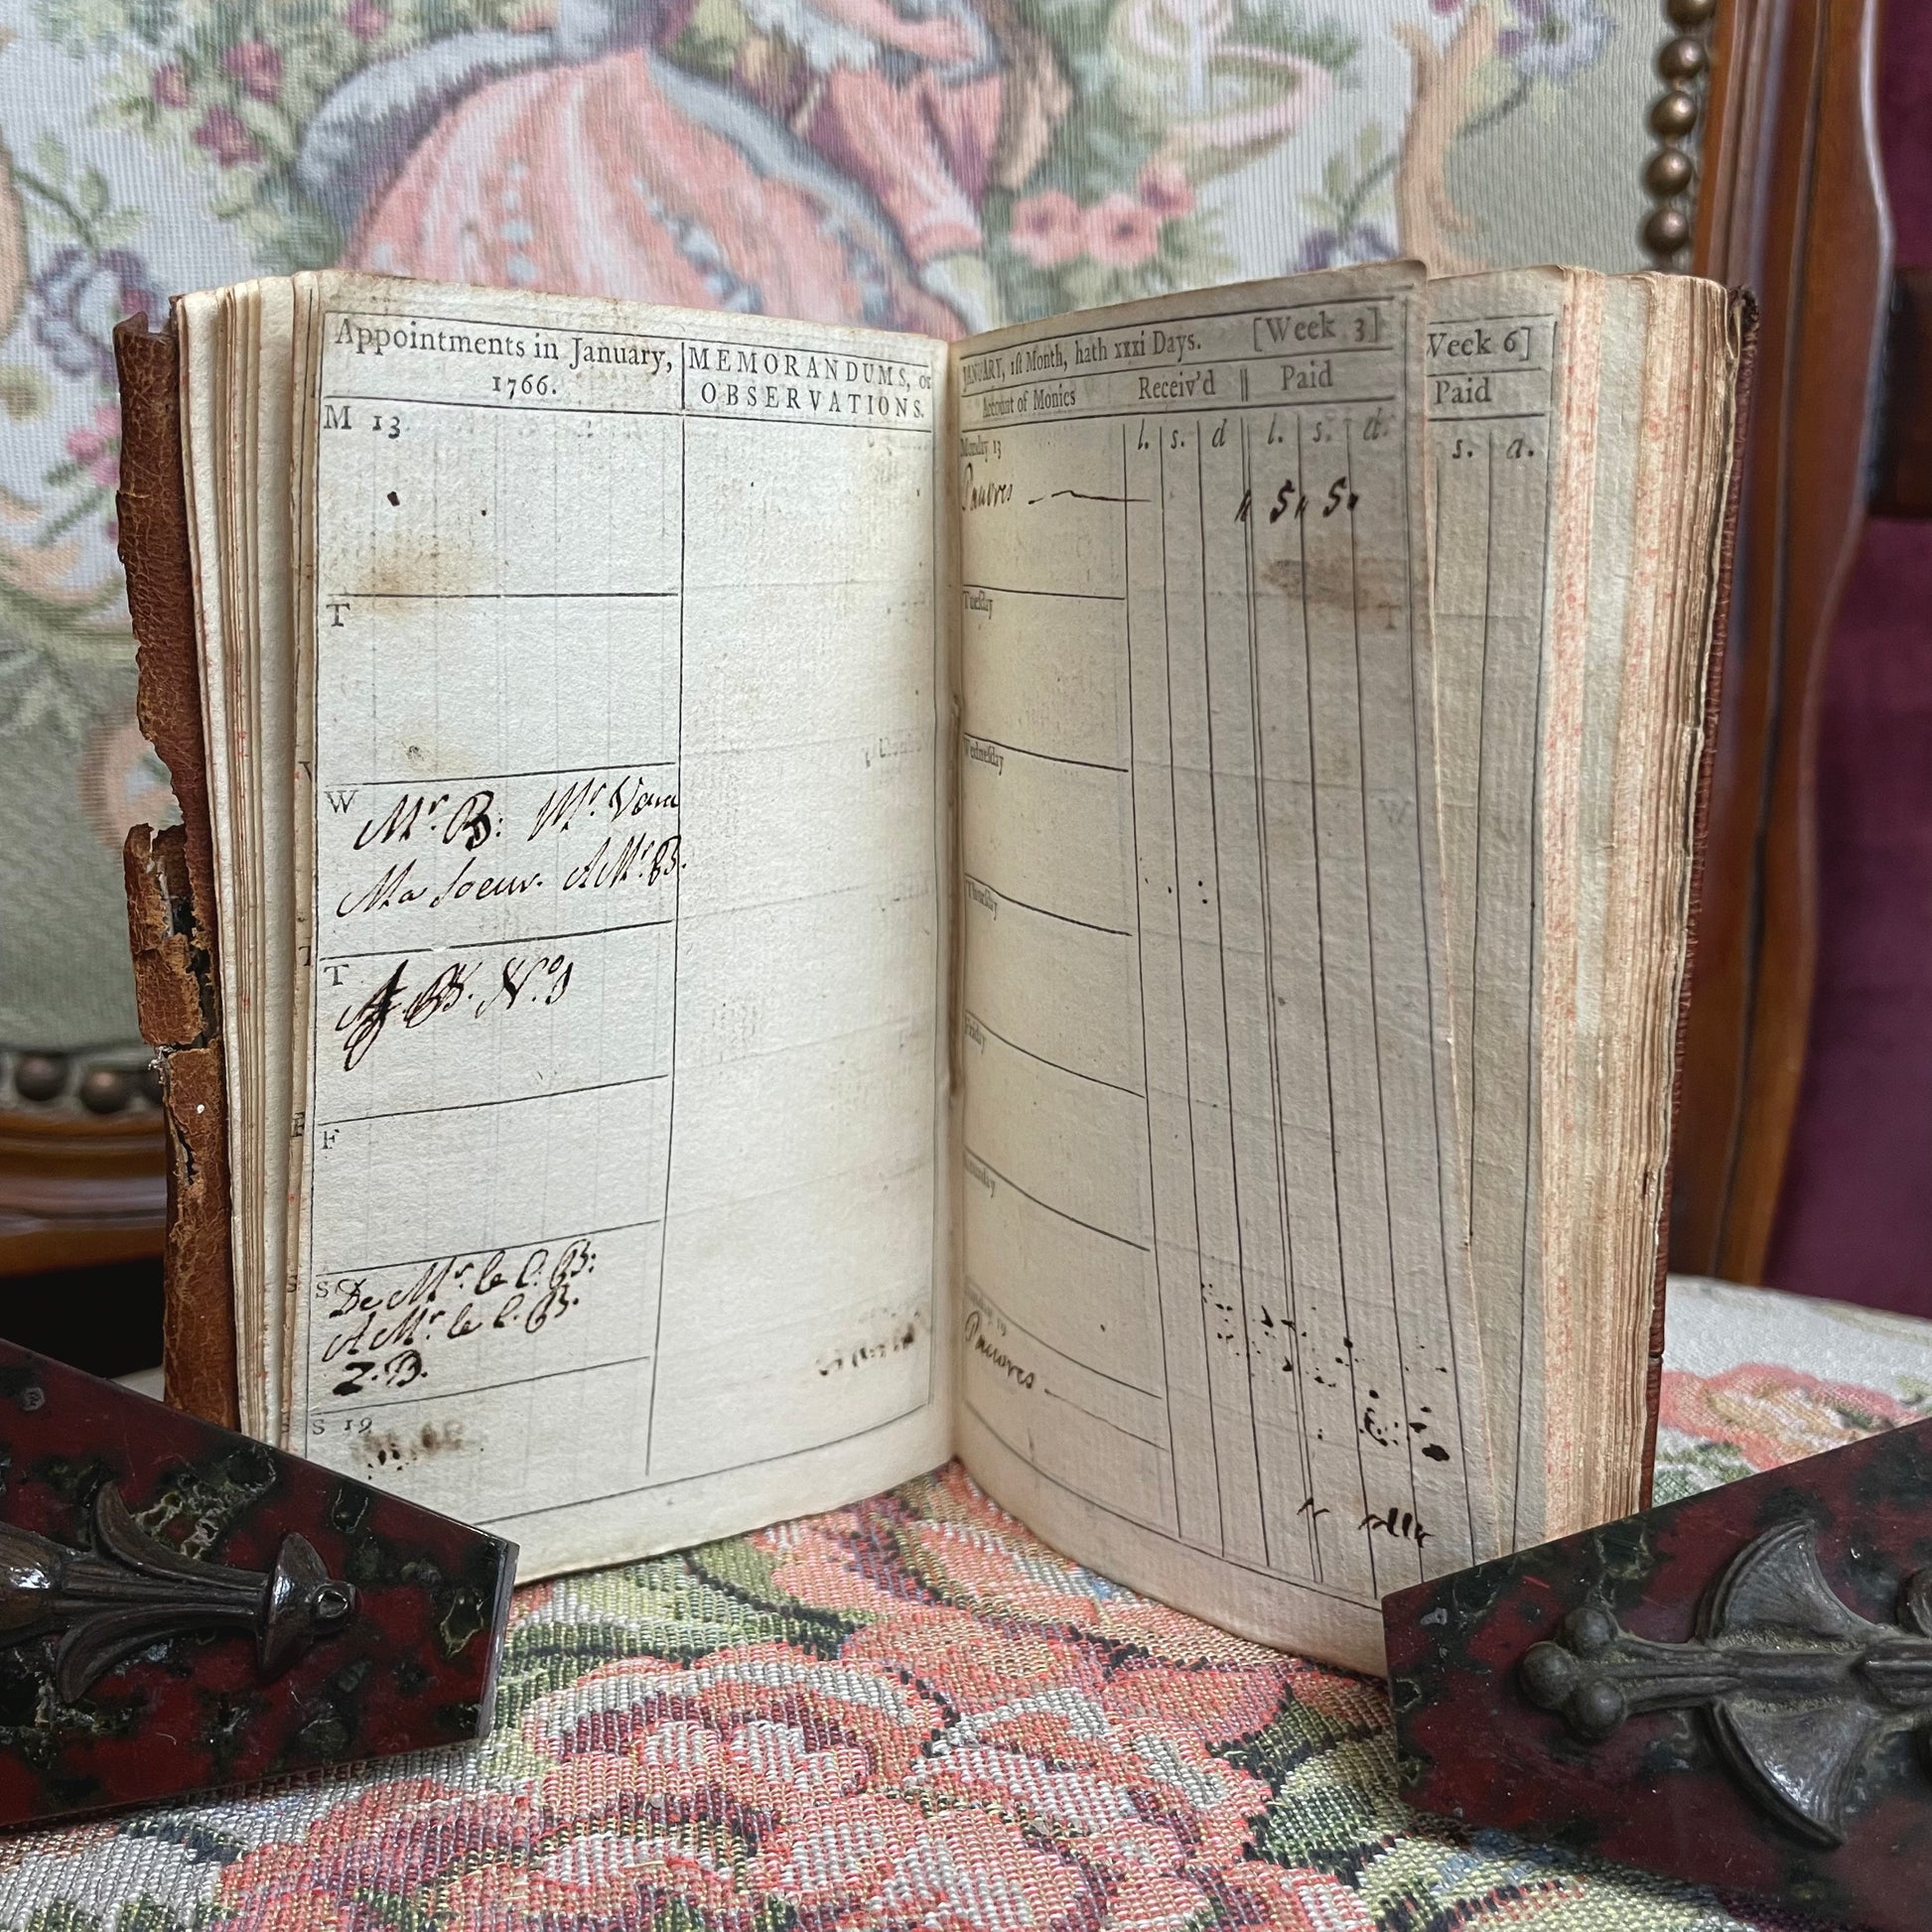 Appointments in January,
1766.
MEMORANDUMS, or
OBSERVATIONS.
M 13
T
W Mr. B: Mr
Ma soeur. A Mr. B.
T B. No
F
S De Mr. le C. B:
A Mr. le C. B.
Z. B.
S 19
JANUARY, 1ſt Month, hath xxxi Days. [Week 3]
Account of Monies Receiv'd Paid
Monday 13 l. s. d l. s. d.
Pauvres 5 5
Tueſday
Wedneſday
Thurſday
Friday
Pauvres
Week 6]
Paid
s. d.